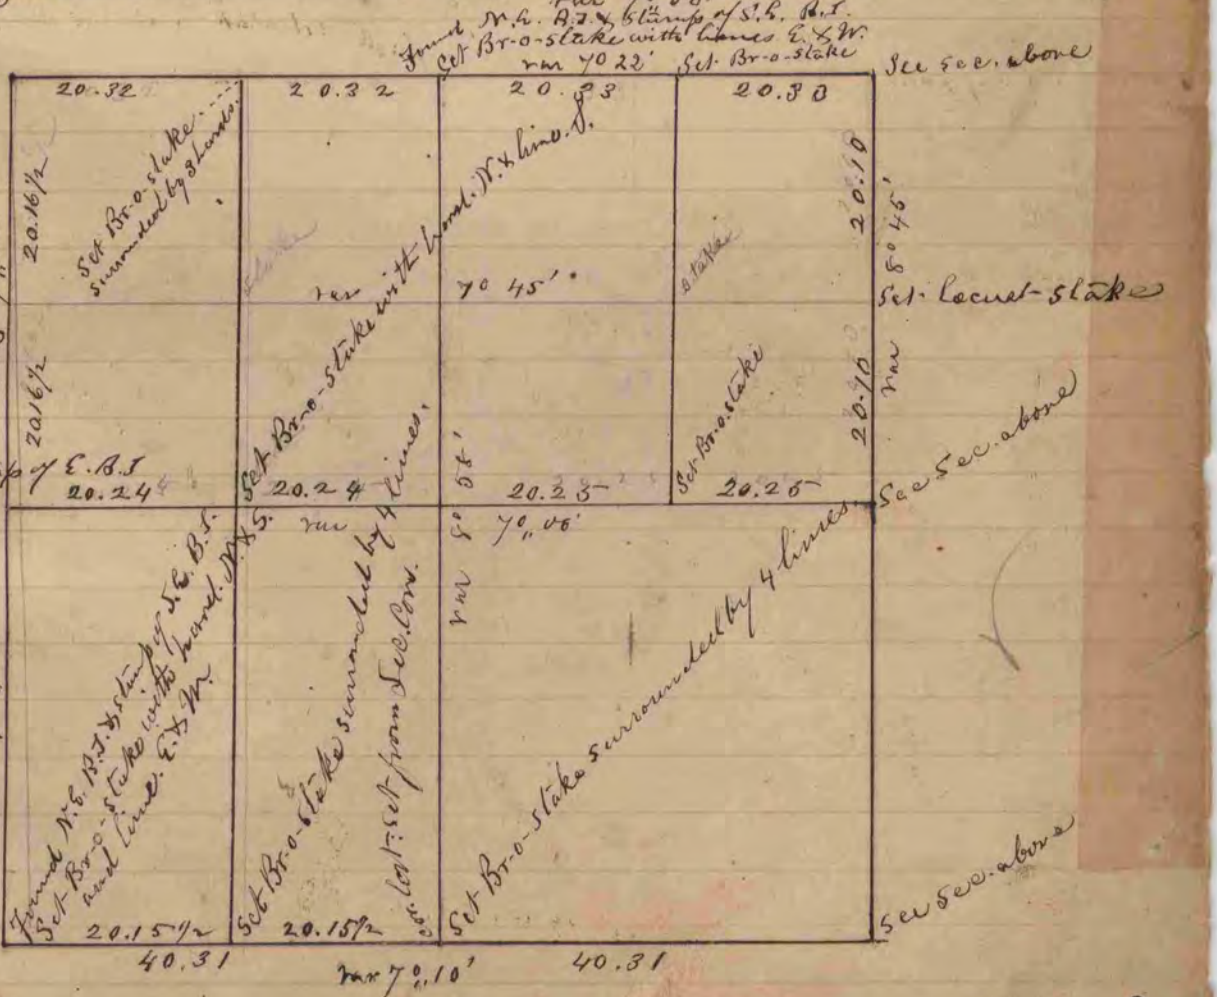 Found N.E. B.T. & Stump of S.E. B.T.
Set Br-o-stake with lines E. & W.
var 7° 22' Set Br-o-stake
See sec. above
20.32 20.32 20.23 20.30
Set Br-o-stake
surrounded by 3 lands.
20.16½
20.10
8° 45'
stake
stake
var 7° 45'
Set locust stake
20.16½
Set Br-o-stake with hand. N. & line. S.
Set Br-o-stake
20.10
var
See Sec. above
of E. B.T
20.24 20.24 20.25 20.25
var 8° 58'
var 7°,, 06'
Found N.E. B.T. & stump of S.E. B.T.
Set Br-o-stake with hand. N. & S.
and line. E. & W.
Set Br-o-stake surrounded by 4 lines.
cor. lost. set from Sec. Cors.
Set Br-o-stake surrounded by 4 lines.
See Sec. above
20.15½ 20.15½
40.31 40.31
var 7°,, 10'